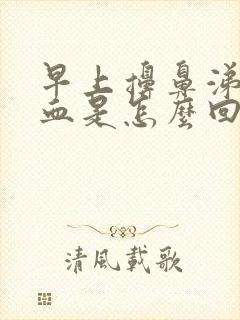 早上擤鼻涕
血是怎麼回
清風載歌